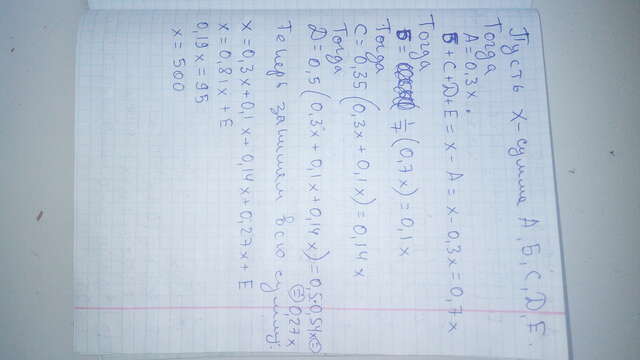 Пусть x-сумма А, Б, С, D, Е.
Тогда
А = 0,3x,
Б + С + D + Е = x - А = x - 0,3x = 0,7x
Тогда
Б = 1/7 (0,7x) = 0,1x
Тогда
С = 0,35 (0,3x + 0,1x) = 0,14x
Тогда
D = 0,5 (0,3x + 0,1x + 0,14x) = 0,5·0,54x =
= 0,27x
Теперь запишем всю сумму:
x = 0,3x + 0,1x + 0,14x + 0,27x + Е
x = 0,81x + Е
0,19x = 95
x = 500